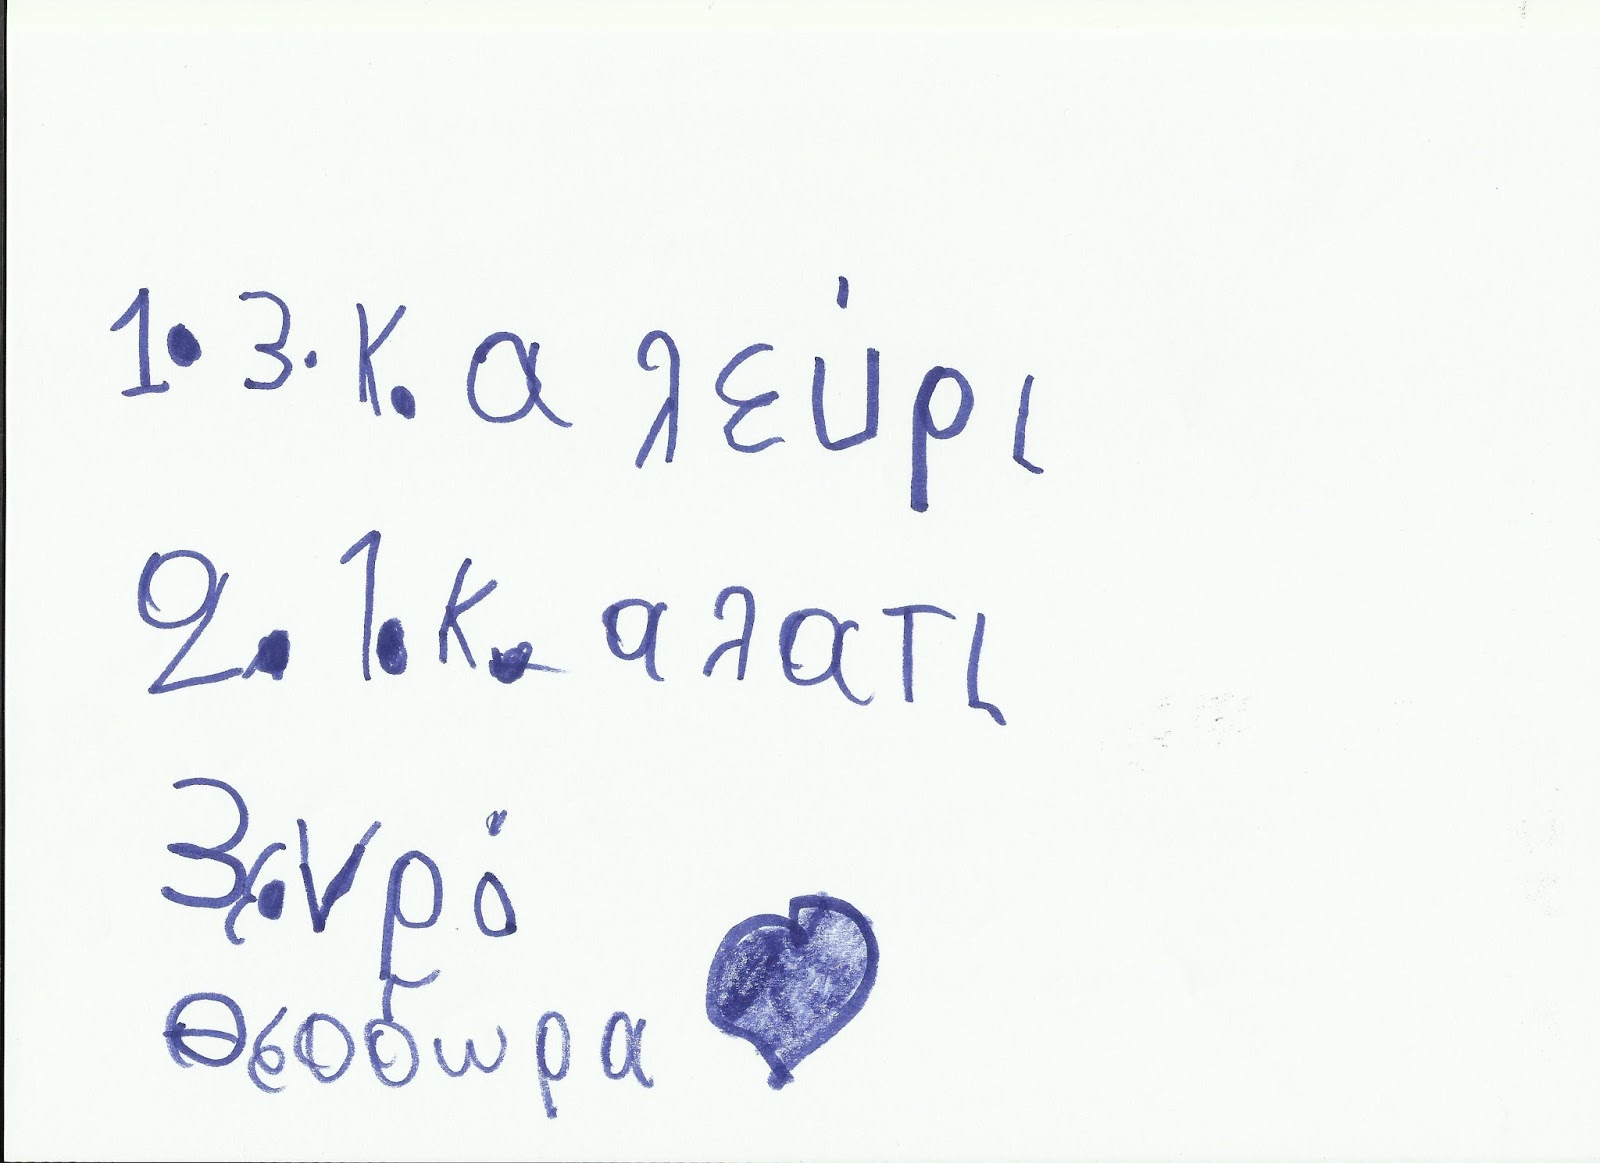 1. 3. κ. αλεύρι
2. 1. κ. αλατι
3. νρό
Θεοδωρα